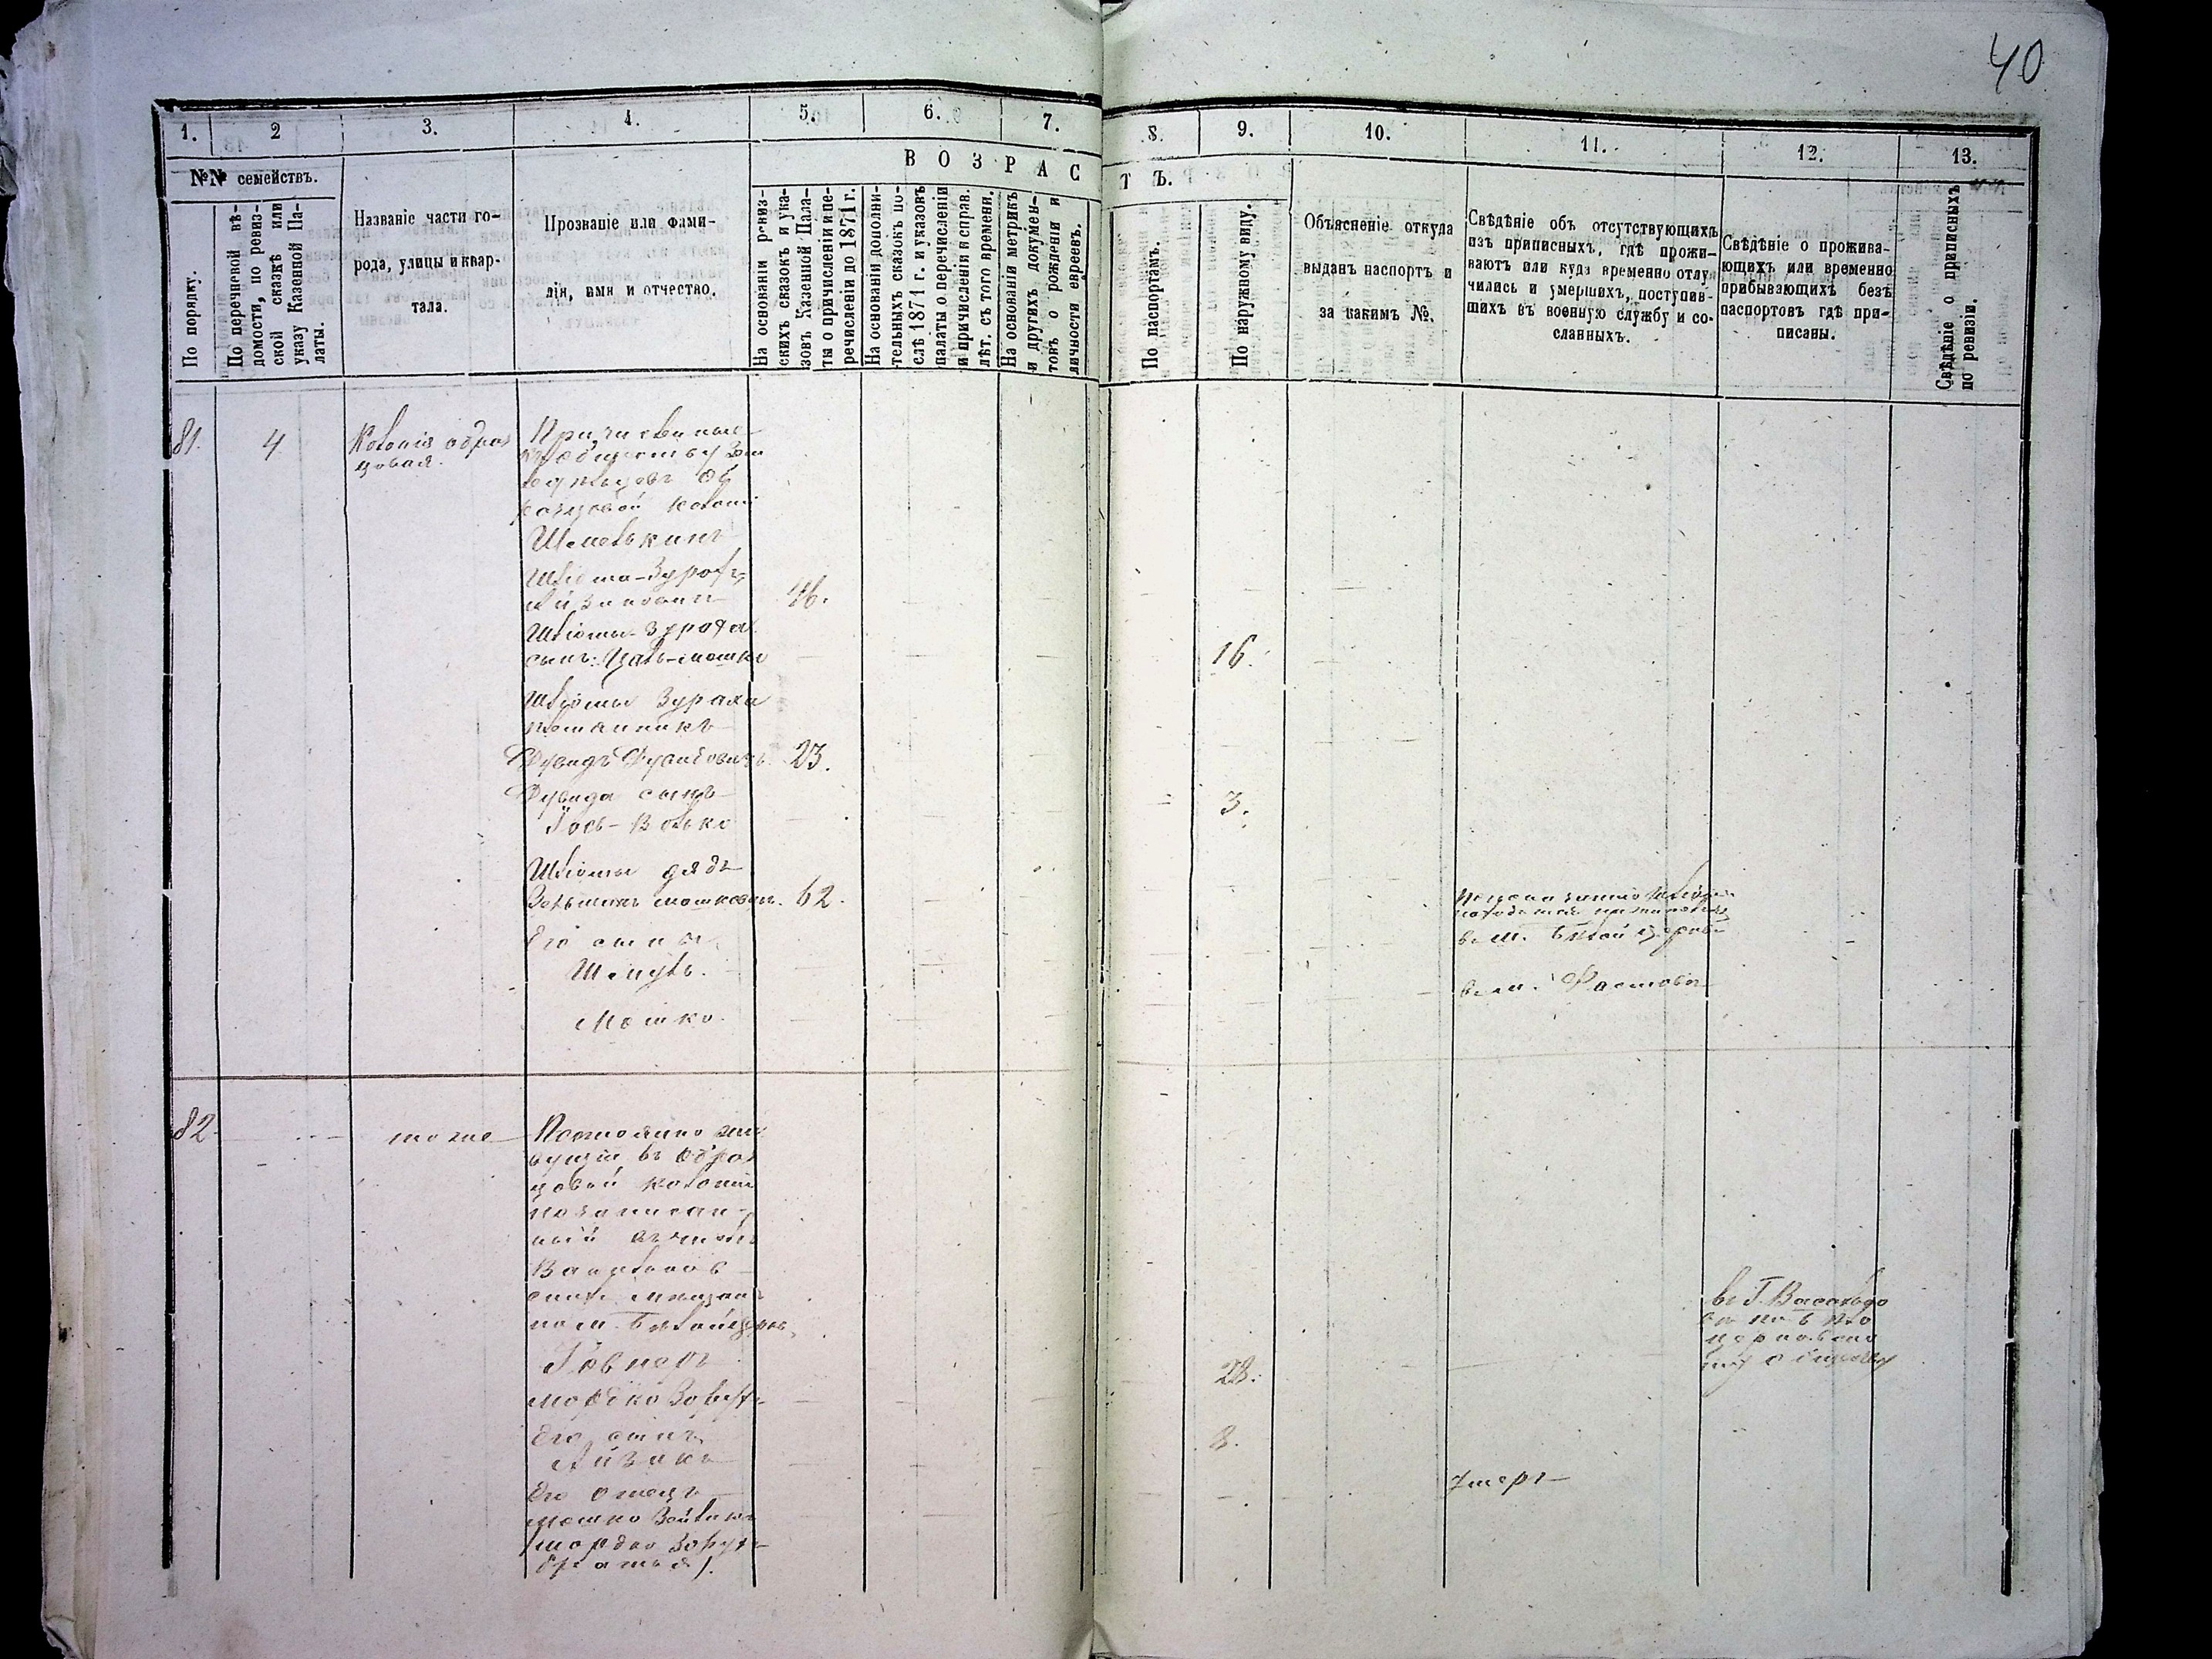 40
1. 2 3. 4. 5. 6. 7. 8. 9. 10. 11. 12. 13.
В О З Р А С Т Ъ.
№№ семействъ.
По порядку.
По перечневой вѣ-
домости, по ревиз-
ской сказкѣ или
указу Казенной Па-
латы.
Названіе части го-
рода, улицы и квар-
тала.
Прозваніе или фами-
лія, имя и отчество.
На основаніи ревиз-
скихъ сказокъ и ука-
зовъ Казенной Пала-
ты о причисленіи и пе-
речисленіи до 1871 г.
На основаніи дополни-
тельныхъ сказокъ по-
слѣ 1871 г. и указовъ
палаты о перечисленіи
и причисленіи и справ.
лѣт. съ того времени.
На основаніи метрикъ
и другихъ докумен-
товъ о рожденіи и
личности евреевъ.
По паспортамъ.
По наружному виду.
Объясненіе откуда
выданъ паспортъ и
за какимъ №.
Свѣдѣніе объ отсутствующихъ
изъ приписныхъ, гдѣ прожи-
ваютъ или куда временно отлу-
чились и умершихъ, поступив-
шихъ въ военную службу и со-
сланныхъ.
Свѣдѣніе о прожива-
ющихъ или временно
прибывающихъ безъ
паспортовъ гдѣ при-
писаны.
Свѣдѣніе о приписныхъ
по ревизіи.
81. 4 Колонія образ
цовая.
Причисленные
къ обществу Зем
ледѣльцевъ Об
разцовой колоніи
Шлема-Зурахъ
46.
Шлiомы-Зураха
сынъ: Цаль-Мошко 16.
Шліомы Зураха
племянникъ
Дувидъ 23.
Дувида сынъ
Іось-Волько 3.
Шліомы дядя
Зельманъ Мошковичъ. 62.
въ м. Бѣлой Церкви
Его сыны
Шмуль.
въ м. Фастовѣ
Мошко.
82 тоже Постоянно жи
вущій въ Образ
цовой колоніи
но записан-
ный
Васильков
скихъ мѣщанъ
по м. Бѣлойцеркв.
въ Г. Василько
вѣ по Бѣло
церковско
му обществу
28.
Мордко
Его сынъ
Айзикъ 8.
Его отецъ Умеръ
Мошко
/Мордко
братья/.